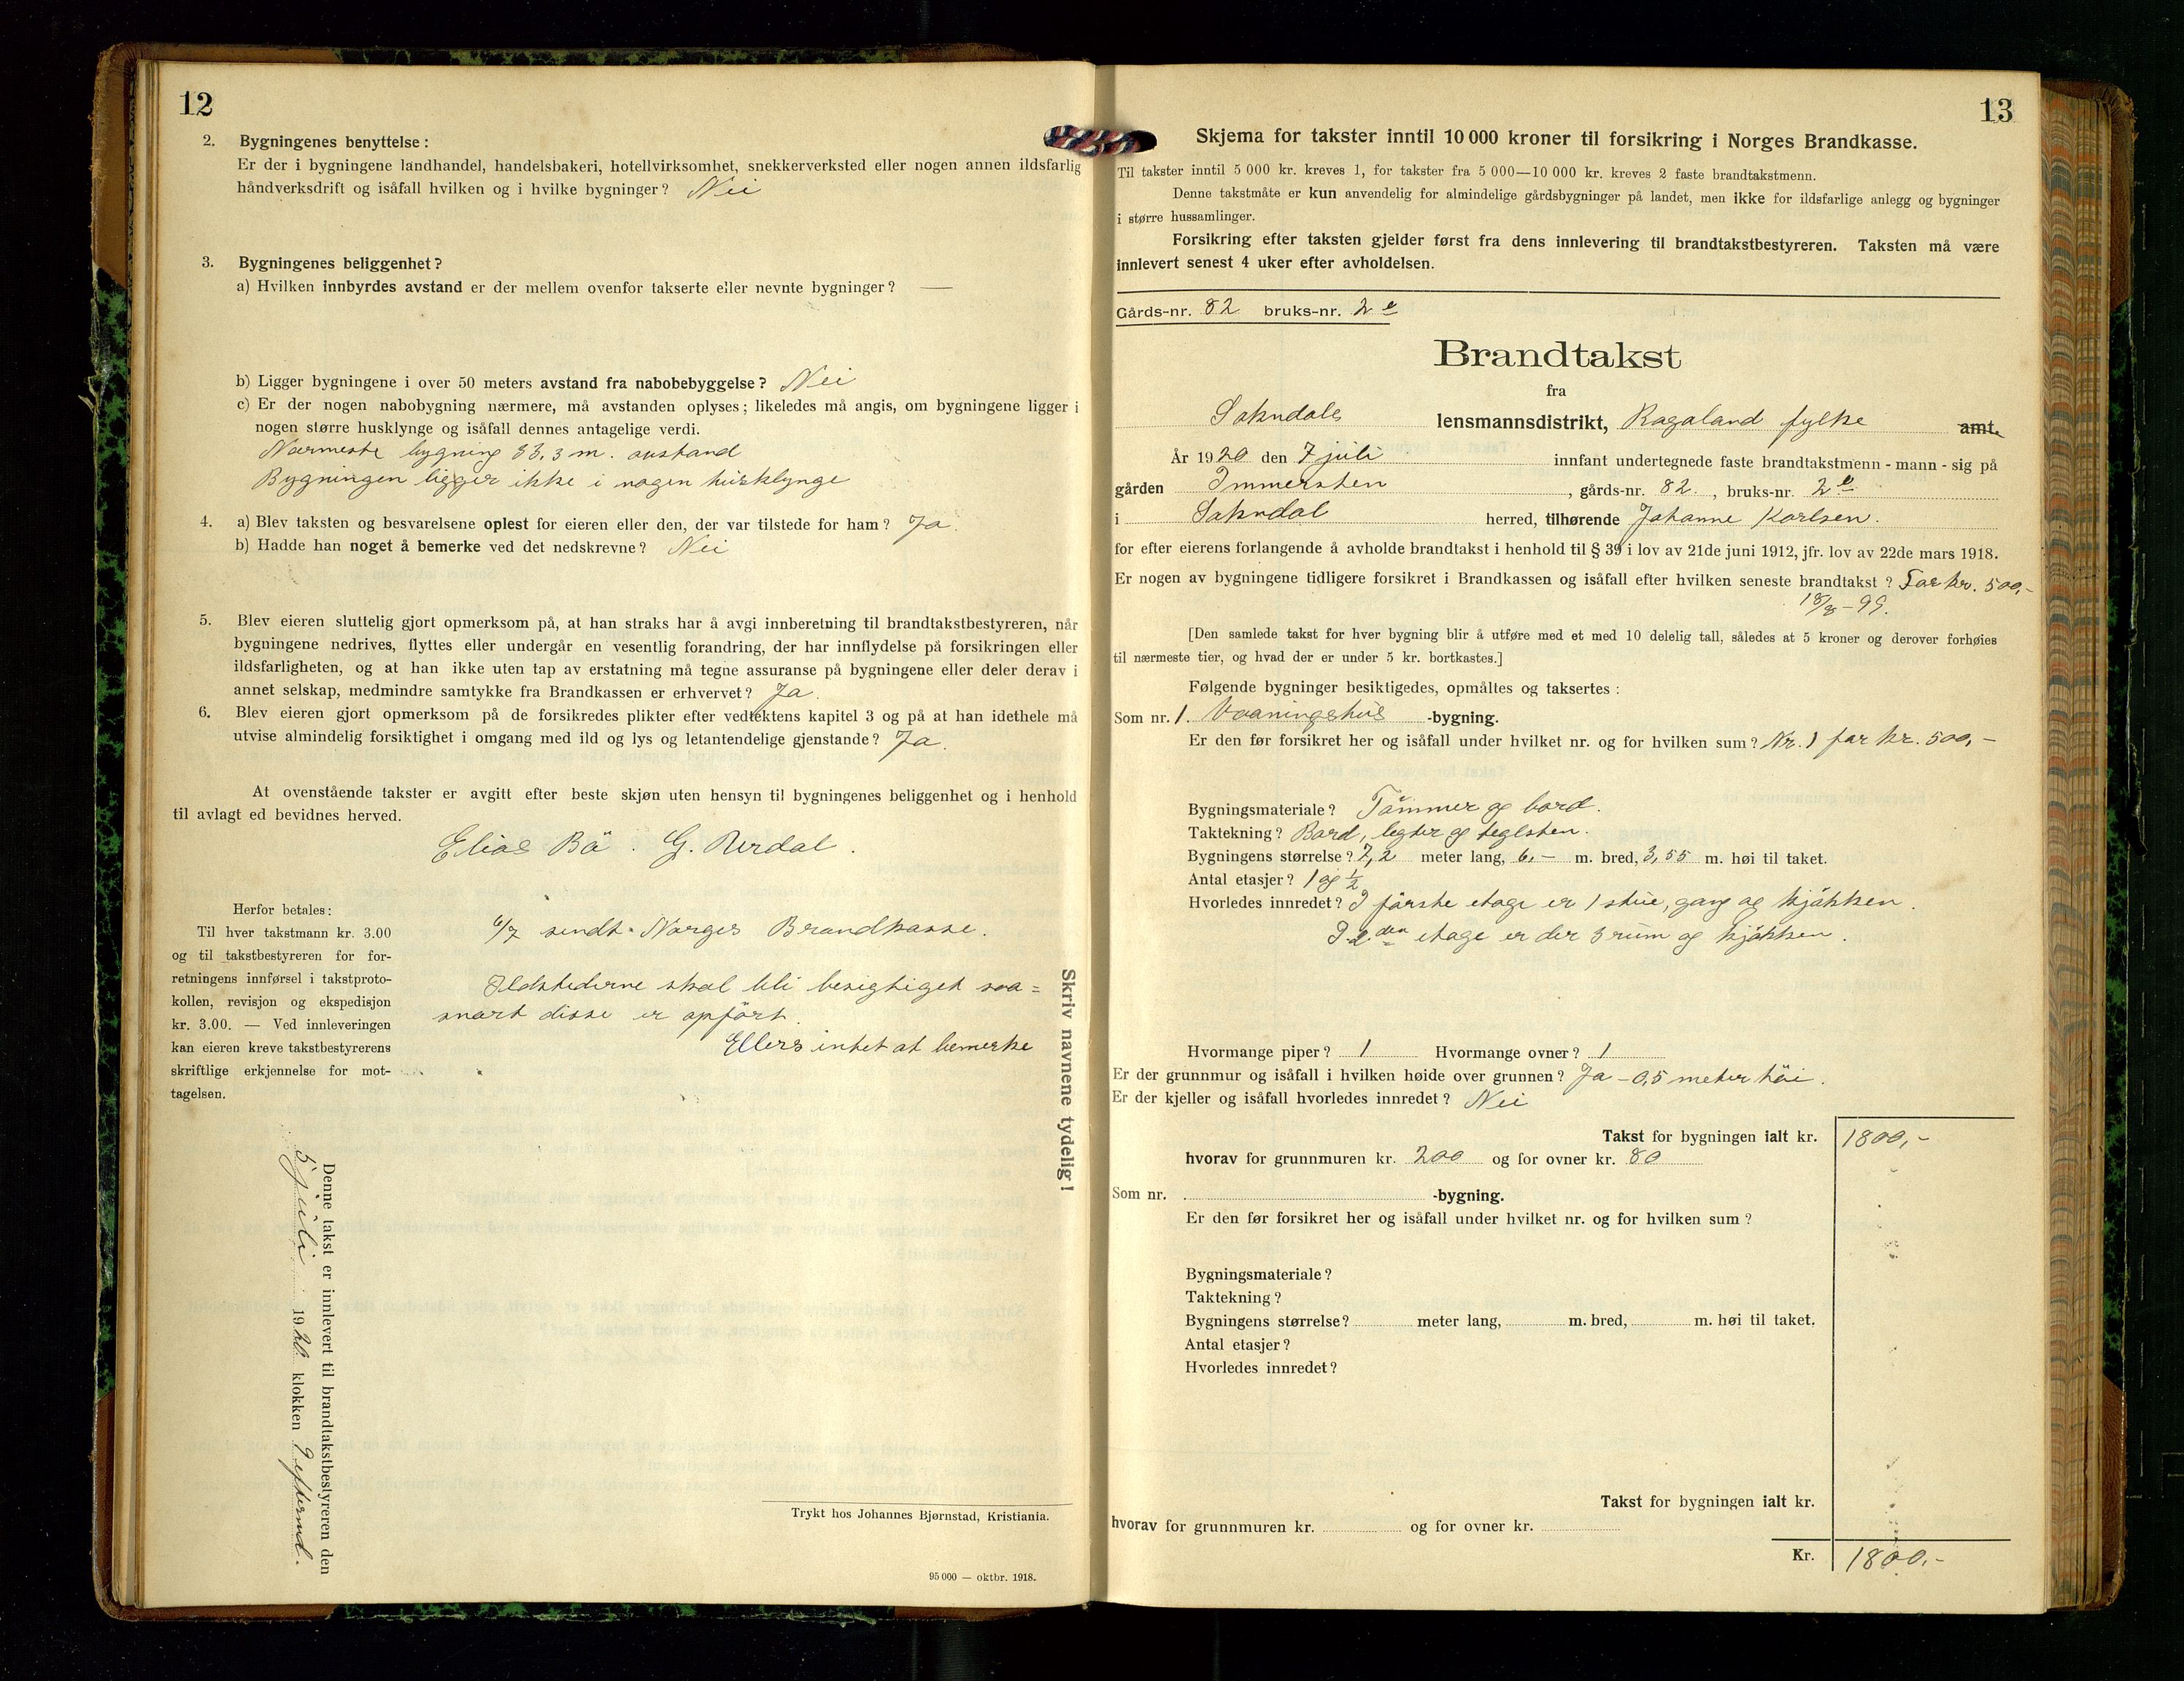 12
2. Bygningenes benyttelse:
Er der i bygningene landhandel, handelsbakeri, hotellvirksomhet, snekkerverksted eller nogen annen ildsfarlig
håndverksdrift og isåfall hvilken og i hvilke bygninger? Nei
3. Bygningenes beliggenhet?
a) Hvilken innbyrdes avstand er der mellem ovenfor takserte eller nevnte bygninger? —
b) Ligger bygningene i over 50 meters avstand fra nabobebyggelse? Nei
c) Er der nogen nabobygning nærmere, må avstanden oplyses; likeledes må angis, om bygningene ligger i
nogen større husklynge og isåfall dennes antagelige verdi.
Nærmeste bygning 33,3 m. avstand
Bygningen ligger ikke i nogen husklynge
4. a) Blev taksten og besvarelsene oplest for eieren eller den, der var tilstede for ham? Ja.
b) Hadde han noget å bemerke ved det nedskrevne? Nei
5. Blev eieren sluttelig gjort opmerksom på, at han straks har å avgi innberetning til brandtakstbestyreren, når
bygningene nedrives, flyttes eller undergår en vesentlig forandring, der har innflydelse på forsikringen eller
ildsfarligheten, og at han ikke uten tap av erstatning må tegne assuranse på bygningene eller deler derav i
annet selskap, medmindre samtykke fra Brandkassen er erhvervet? Ja.
6. Blev eieren gjort opmerksom på de forsikredes plikter efter vedtektens kapitel 3 og på at han idethele må
utvise almindelig forsiktighet i omgang med ild og lys og letantendelige gjenstande? Ja.
At ovenstående takster er avgitt efter beste skjøn uten hensyn til bygningenes beliggenhet og i henhold
til avlagt ed bevidnes herved.
Elias Bö. G.
Herfor betales:
Til hver takstmann kr. 3.00
og til takstbestyreren for for-
retningens innførsel i takstproto-
kollen, revisjon og ekspedisjon
kr. 3.00. — Ved innleveringen
kan eieren kreve takstbestyrerens
skriftlige erkjennelse for mot-
tagelsen.
6/7 sendt Norges Brandkasse.
Ildstederne skal bli besigtiget saa=
snart disse er opført.
Ellers intet at bemerke
Skriv navnene tydelig!
Denne takst er innlevert til brandtakstbestyreren den
5 juli 1920 klokken 9 efterm.
Trykt hos Johannes Bjørnstad, Kristiania.
95 000 — oktbr. 1918.
13
Skjema for takster inntil 10 000 kroner til forsikring i Norges Brandkasse.
Til takster inntil 5 000 kr. kreves 1, for takster fra 5 000—10 000 kr. kreves 2 faste brandtakstmenn.
Denne takstmåte er kun anvendelig for almindelige gårdsbygninger på landet, men ikke for ildsfarlige anlegg og bygninger
i større hussamlinger.
Forsikring efter taksten gjelder først fra dens innlevering til brandtakstbestyreren. Taksten må være
innlevert senest 4 uker efter avholdelsen.
Gårds-nr. 82 bruks-nr. 2e
Brandtakst
fra
Sokndals lensmannsdistrikt, Rogaland fylke amt.
År 1920 den 7 juli innfant undertegnede faste brandtakstmenn - mann - sig på
gården Immersten, gårds-nr. 82., bruks-nr. 2e
i Sokndal herred, tilhørende Johanne Karlsen.
for efter eierens forlangende å avholde brandtakst i henhold til § 39 i lov av 21de juni 1912, jfr. lov av 22de mars 1918.
Er nogen av bygningene tidligere forsikret i Brandkassen og isåfall efter hvilken seneste brandtakst? For kr. 500,-
18/8 - 99.
[Den samlede takst for hver bygning blir å utføre med et med 10 delelig tall, således at 5 kroner og derover forhøies
til nærmeste tier, og hvad der er under 5 kr. bortkastes.]
Følgende bygninger besiktigedes, opmåltes og taksertes:
Som nr. 1. Vaaningshus -bygning.
Er den før forsikret her og isåfall under hvilket nr. og for hvilken sum? Nr. 1 for kr. 500,-
Bygningsmateriale? Tömmer og bord.
Taktekning? Bord, legter og teglsten.
Bygningens størrelse? 7,2 meter lang, 6,- m. bred, 3,55 m. høi til taket.
Antal etasjer? 1 og 1/2
Hvorledes innredet? I første etage er 1 stue, gang og kjökken.
I 2.den etage er der 3 rum og kjökken.
Hvormange piper? 1 Hvormange ovner? 1
Er der grunnmur og isåfall i hvilken høide over grunnen? Ja - 0,5 meter höi.
Er der kjeller og isåfall hvorledes innredet? Nei
Takst for bygningen ialt kr. 1800,-
hvorav for grunnmuren kr. 200 og for ovner kr. 80
Som nr. -bygning.
Er den før forsikret her og isåfall under hvilket nr. og for hvilken sum?
Bygningsmateriale?
Taktekning?
Bygningens størrelse? meter lang, m. bred, m. høi til taket.
Antal etasjer?
Hvorledes innredet?
Takst for bygningen ialt kr.
hvorav for grunnmuren kr. og for ovner kr.
Kr. 1800.-